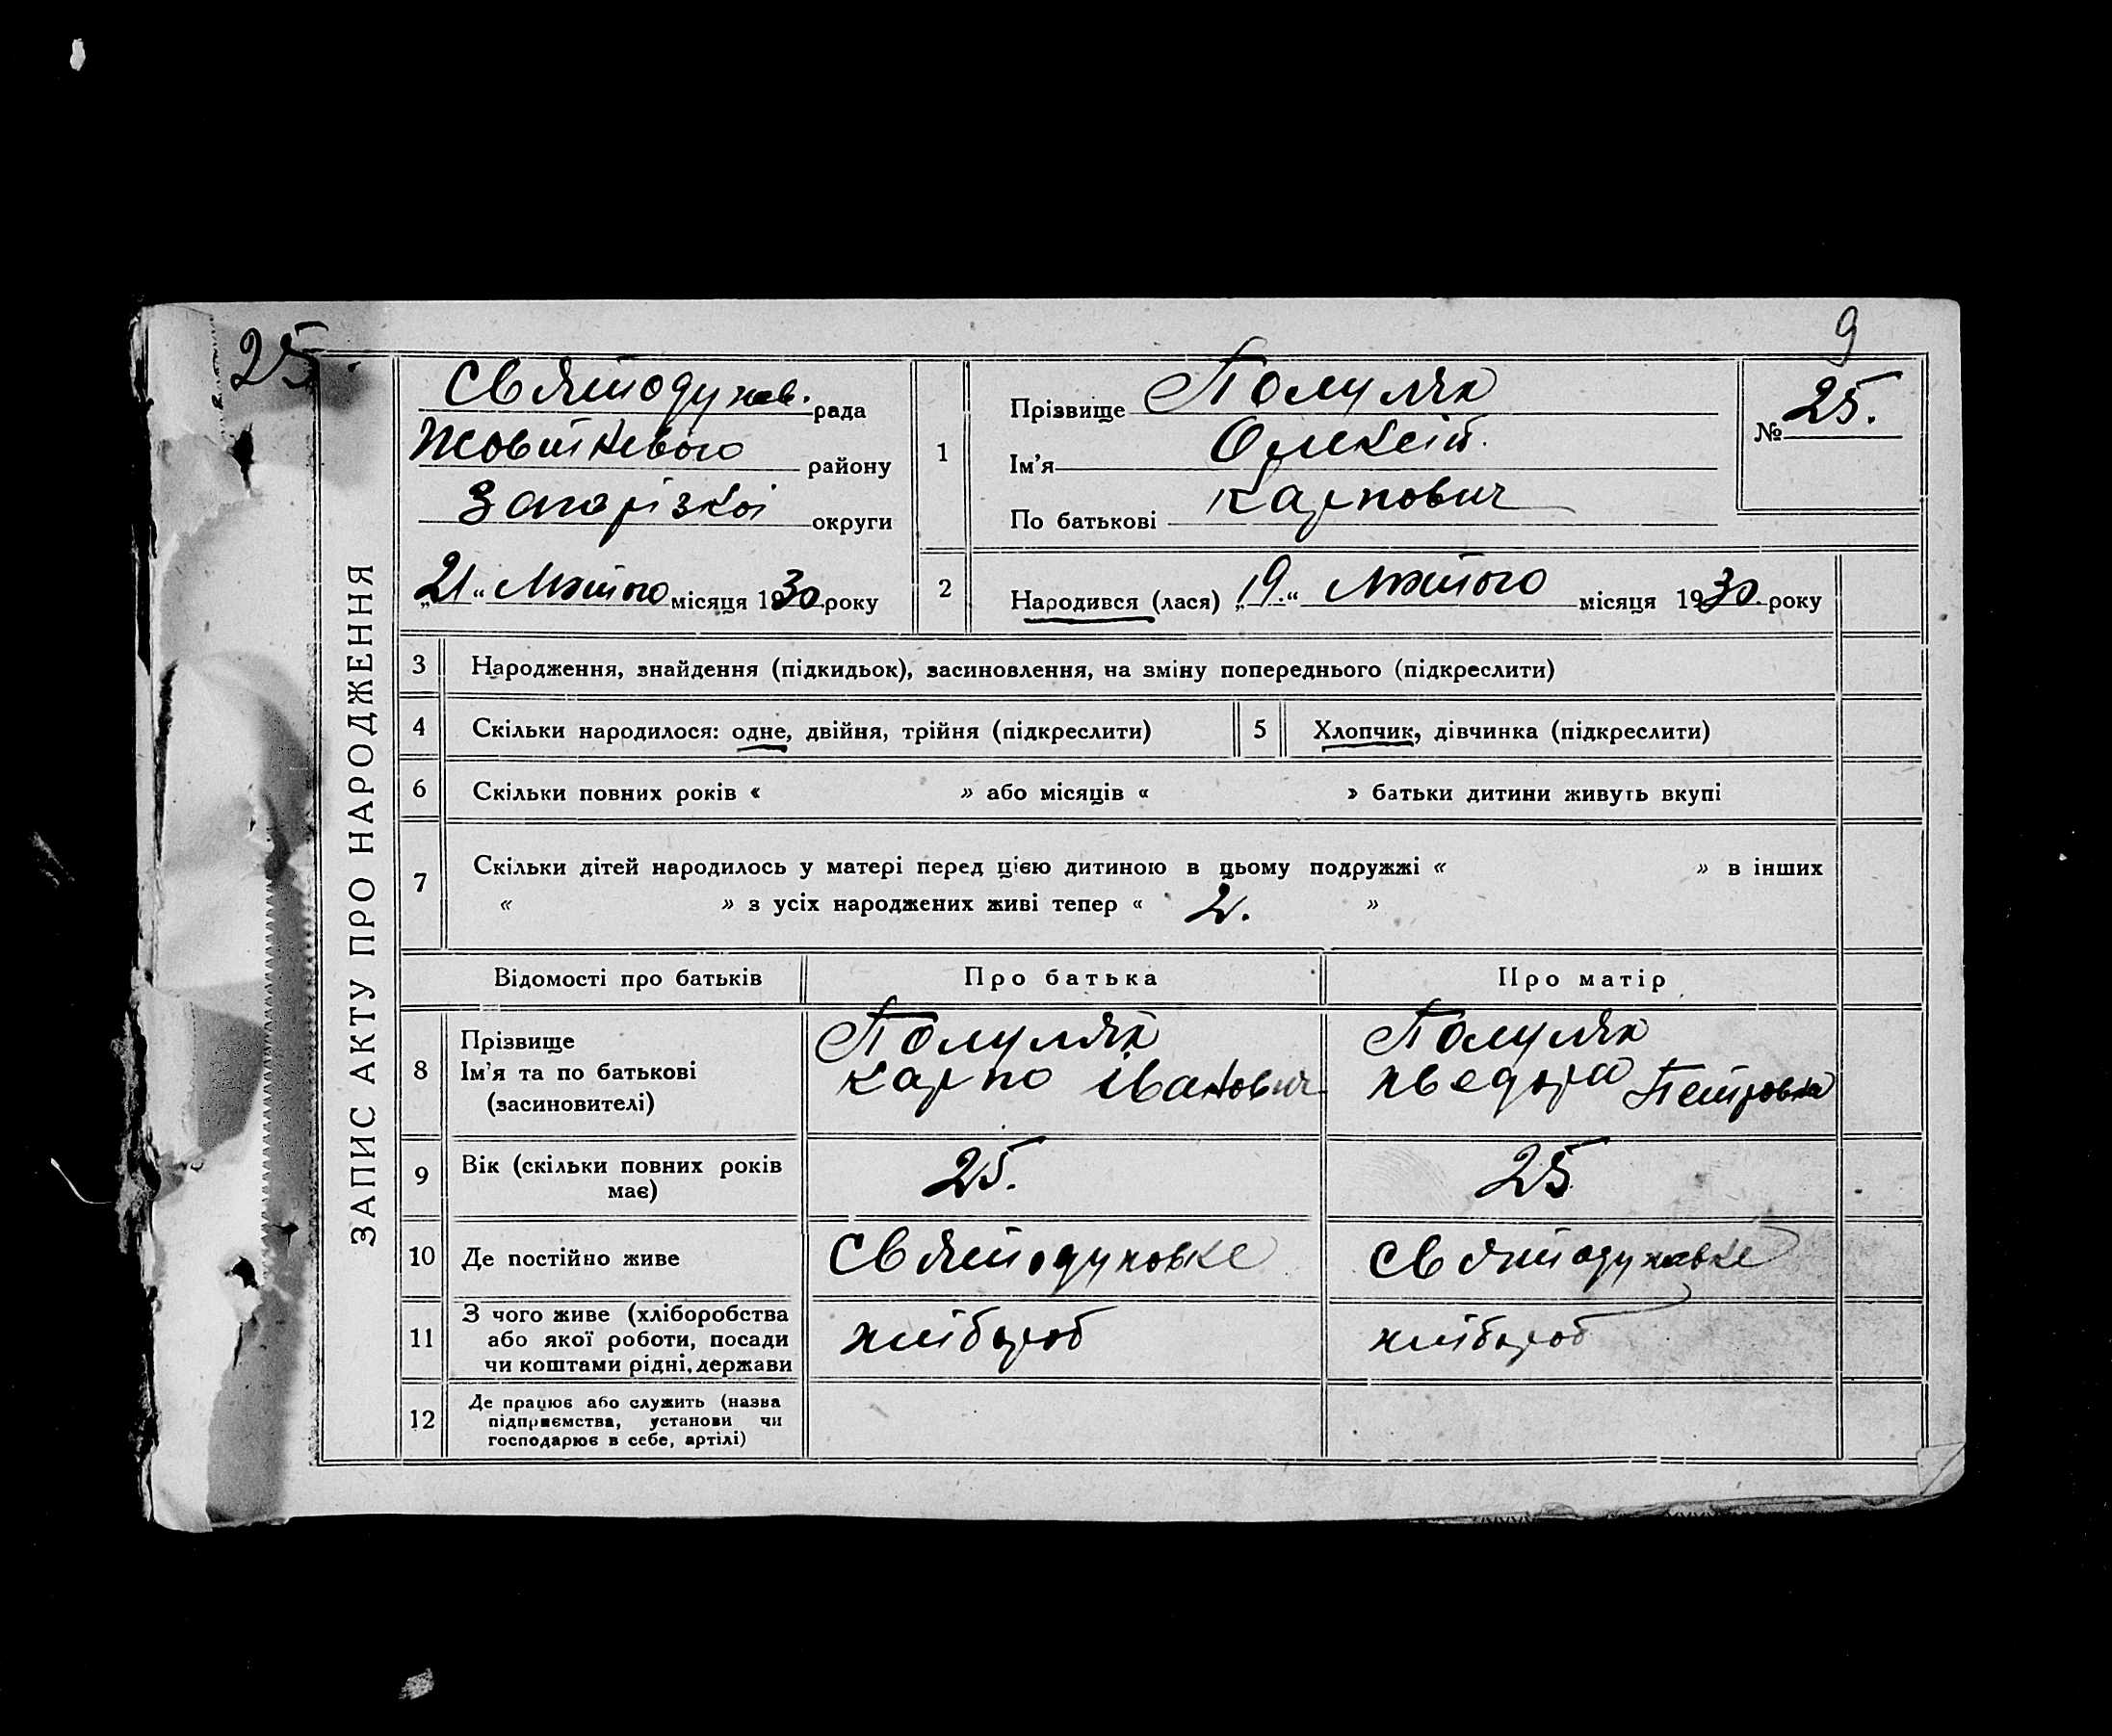 25.
9
ЗАПИС АКТУ ПРО НАРОДЖЕННЯ
Святодухов. рада
Жовтневого району
Запорізкої округи
„21“ Лютого місяця 1930 року
1
Прізвище Полуляк
Ім'я Олексій.
По батькові Карпович
№ 25.
2
Народився (лася) „19.“ Лютого місяця 1930. року
3 Народження, знайдення (підкидьок), засиновлення, на зміну попереднього (підкреслити)
4 Скільки народилося: одне, двійня, трійня (підкреслити) 5 Хлопчик, дівчинка (підкреслити)
6 Скільки повних років « » або місяців « » батьки дитини живуть вкупі
7 Скільки дітей народилось у матері перед цією дитиною в цьому подружжі « » в інших
« » з усіх народжених живі тепер « 2. »
Відомості про батьків Про батька Про матір
8 Прізвище Полуляк Полуляк
Ім'я та по батькові Карпо Іванович Хведора Петровна
(засиновителі)
9 Вік (скільки повних років 25. 25
має)
10 Де постійно живе Святодуховке Святодуховке
11 З чого живе (хліборобства
або якої роботи, посади хлібороб хлібороб
чи коштами рідні, держави
12 Де працює або служить (назва
підприємства, установи чи
господарює в себе, артілі)